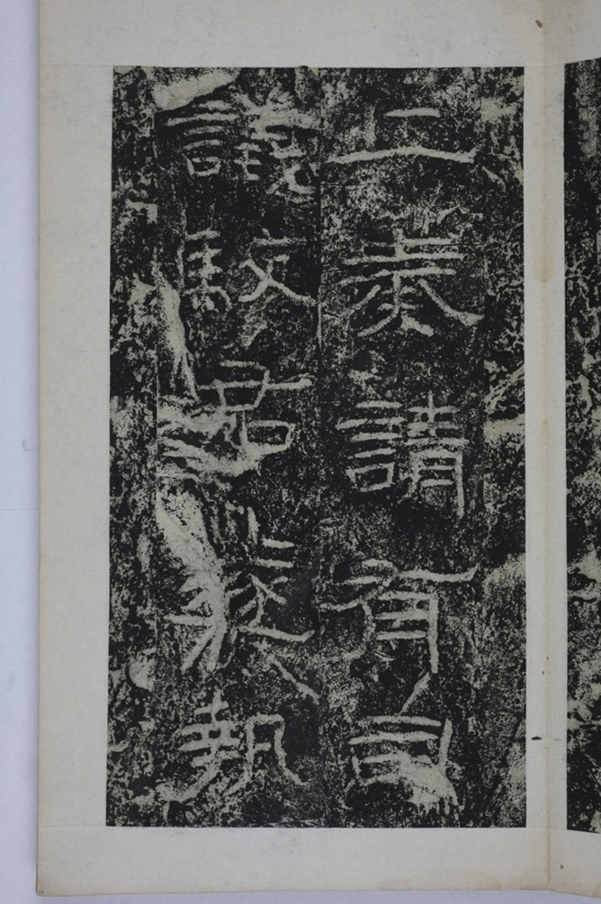 上奏請有司
議駮君遂執